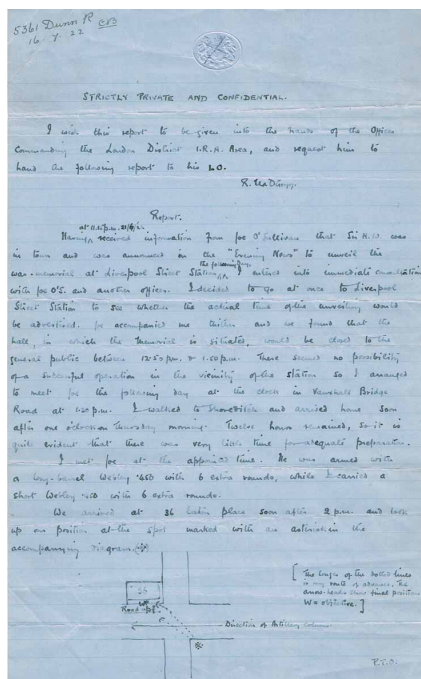 5361 Dunn R
16. 7. 22
STRICTLY PRIVATE AND CONFIDENTIAL.
I wish this report to be given into the hands of the Officer
Commanding the London District I.R.A. Area, and request him to
hand the following report to his
R.
Report.
at 11.15 p.m. 21/6/22
Having received information from Joe O'Sullivan that Sir H.W. was
in town and was announced in the "Evening News" to unveil the
the following day
war-memorial at Liverpool Street Station, I entered into immediate consultation
with Joe O'S. and another officer. I decided to go at once to Liverpool
Street Station to see whether the actual time of the unveiling would
be advertised. Joe accompanied me thither and we found that the
hall, in which the memorial is situated, would be closed to the
general public between 12.50 p.m. & 1.50 p.m. There seemed no possibility
of a successful operation in the vicinity of the station so I arranged
to meet Joe the following day at the clock in Vauxhall Bridge
Road at p.m. I walked to Shoreditch and arrived home soon
after one o'clock on Thursday morning. Twelve hours remained, so it is
quite evident that there was very little time for adequate preparation.
I met Joe at the appointed time. He was armed with
a long-barrel Webley .450 with 6 extra rounds, while I carried a
short Webley .450 with 6 extra rounds.
We arrived at 36 Eaton Place soon after 2 p.m. and took
up our position at the spot marked with an asterisk in the
accompanying diagram.
36
Road up
Direction of Artillery Column
[The longer of the dotted lines
is my route of advance. The
arrow-heads show final position.
W = objective.]
P.T.O.